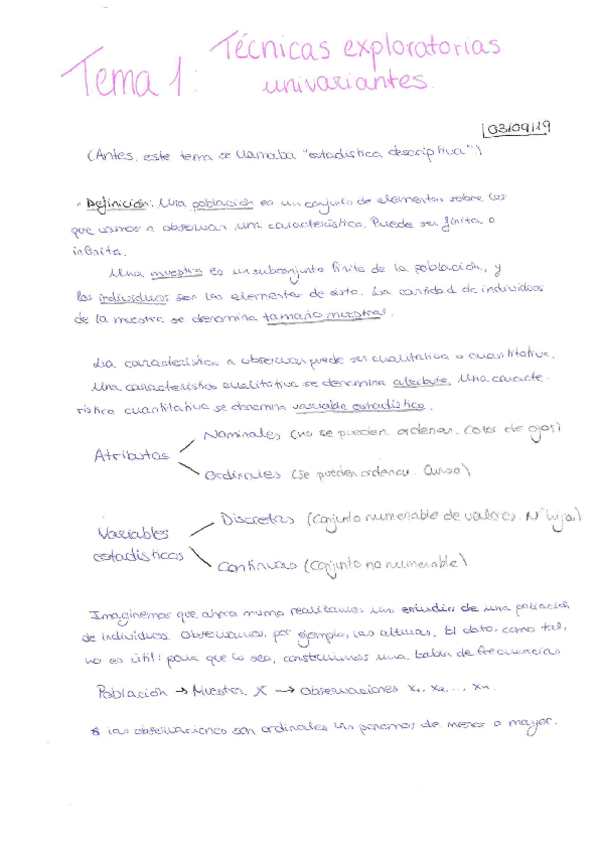 Tema 1: Técnicas exploratorias
univariantes.
03/09/19
(Antes, este tema se llamaba "estadística descriptiva")
· Definición: Una población es un conjunto de elementos sobre los
que vamos a observar una característica. Puede ser finita o
infinita.
Una muestra es un subconjunto finito de la población, y
los individuos son los elementos de ésta. La cantidad de individuos
de la muestra se denomina tamaño muestral.
La característica a observar puede ser cualitativa o cuantitativa.
Una característica cualitativa se denomina atributo. Una caracte-
rística cuantitativa se denomina variable estadística.
Nominales (no se pueden ordenar. Color de ojos)
Atributos
Ordinales (Se pueden ordenar. Curso)
Discretas (Conjunto numerable de valores. Nº hijos)
Variables
estadísticas
Continuas (Conjunto no numerable)
Imaginemos que ahora mismo realizamos un estudio de una población
de individuos. Observamos, por ejemplo, las alturas. El dato, como tal,
no es útil: para que lo sea, construimos una tabla de frecuencias.
Población → Muestra X → Observaciones x₁, x₂, ..., xₙ.
Si las observaciones son ordinales las ponemos de menor a mayor.